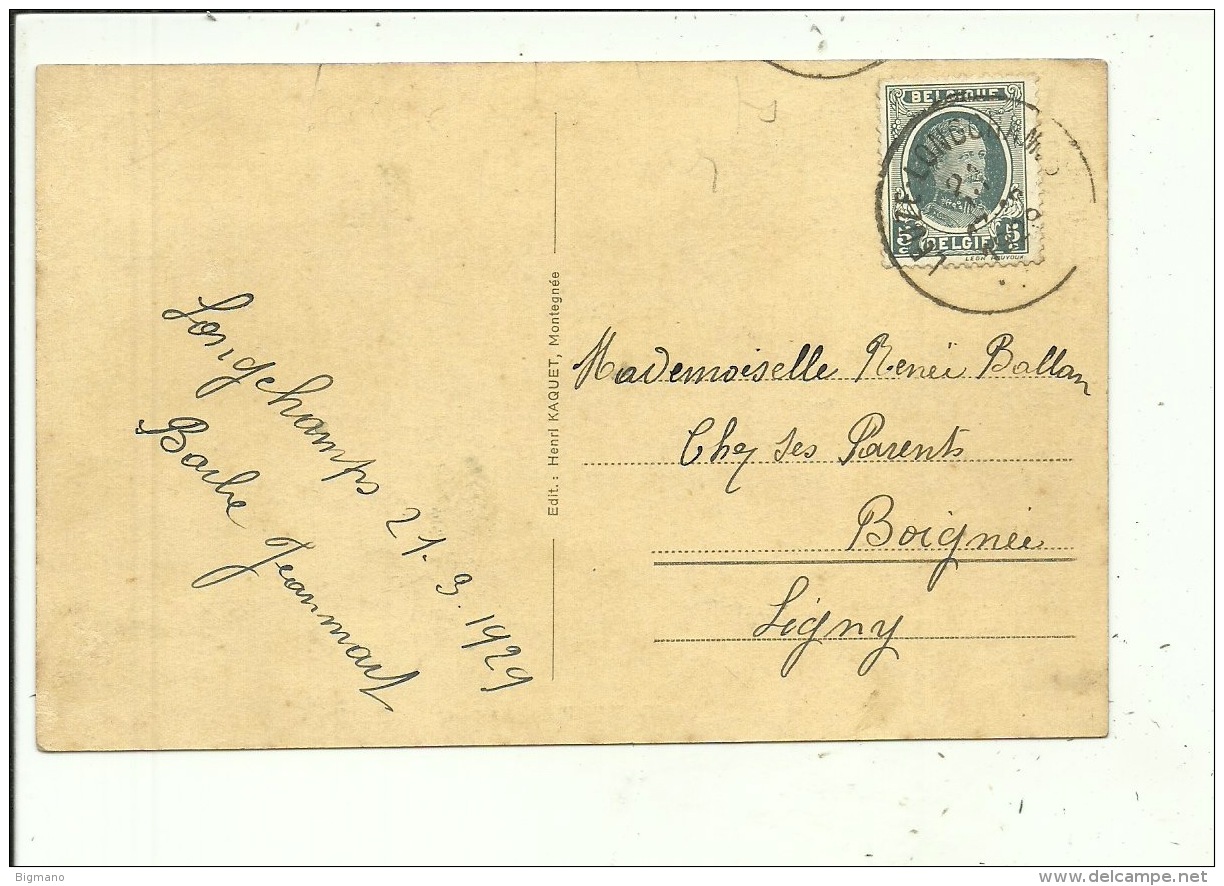 BELGIQUE
5c 5c
BELGIË
LEUZE LONGCHAMPS
Longchamps 21.3.1929
Barbe Jeanmart
Edit.: Henri KAQUET, Montegnée
Mademoiselle Renée Ballan
Chez ses Parents
Boignée
Ligny
Bigmano
www.delcampe.net